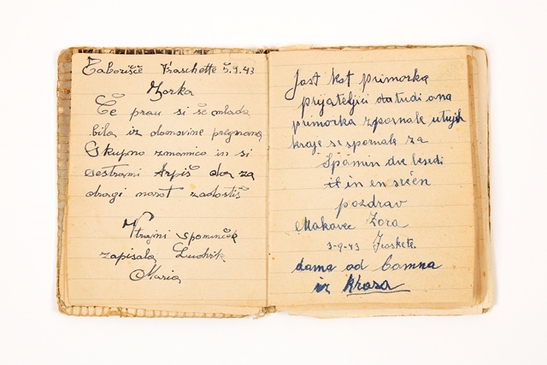 Taborišče Fraschette 5.9.43
Zorka
Če prav si še mlada
bila iz domovine pregnana
Skupno z mamico in si
sestrami trpiš da za
dragi narod zadostiš
V trajni spominček
zapisala Ludvik
Marija
Jast kot primorka
prijateljici da tudi ona
primorka spoznale v tujih
kraje se spoznale za
Spomin dve besedi
ti in en srčen
pozdrav
Makovec Zora
3-9-43 Fraskete
doma od Comna
iz Krasa